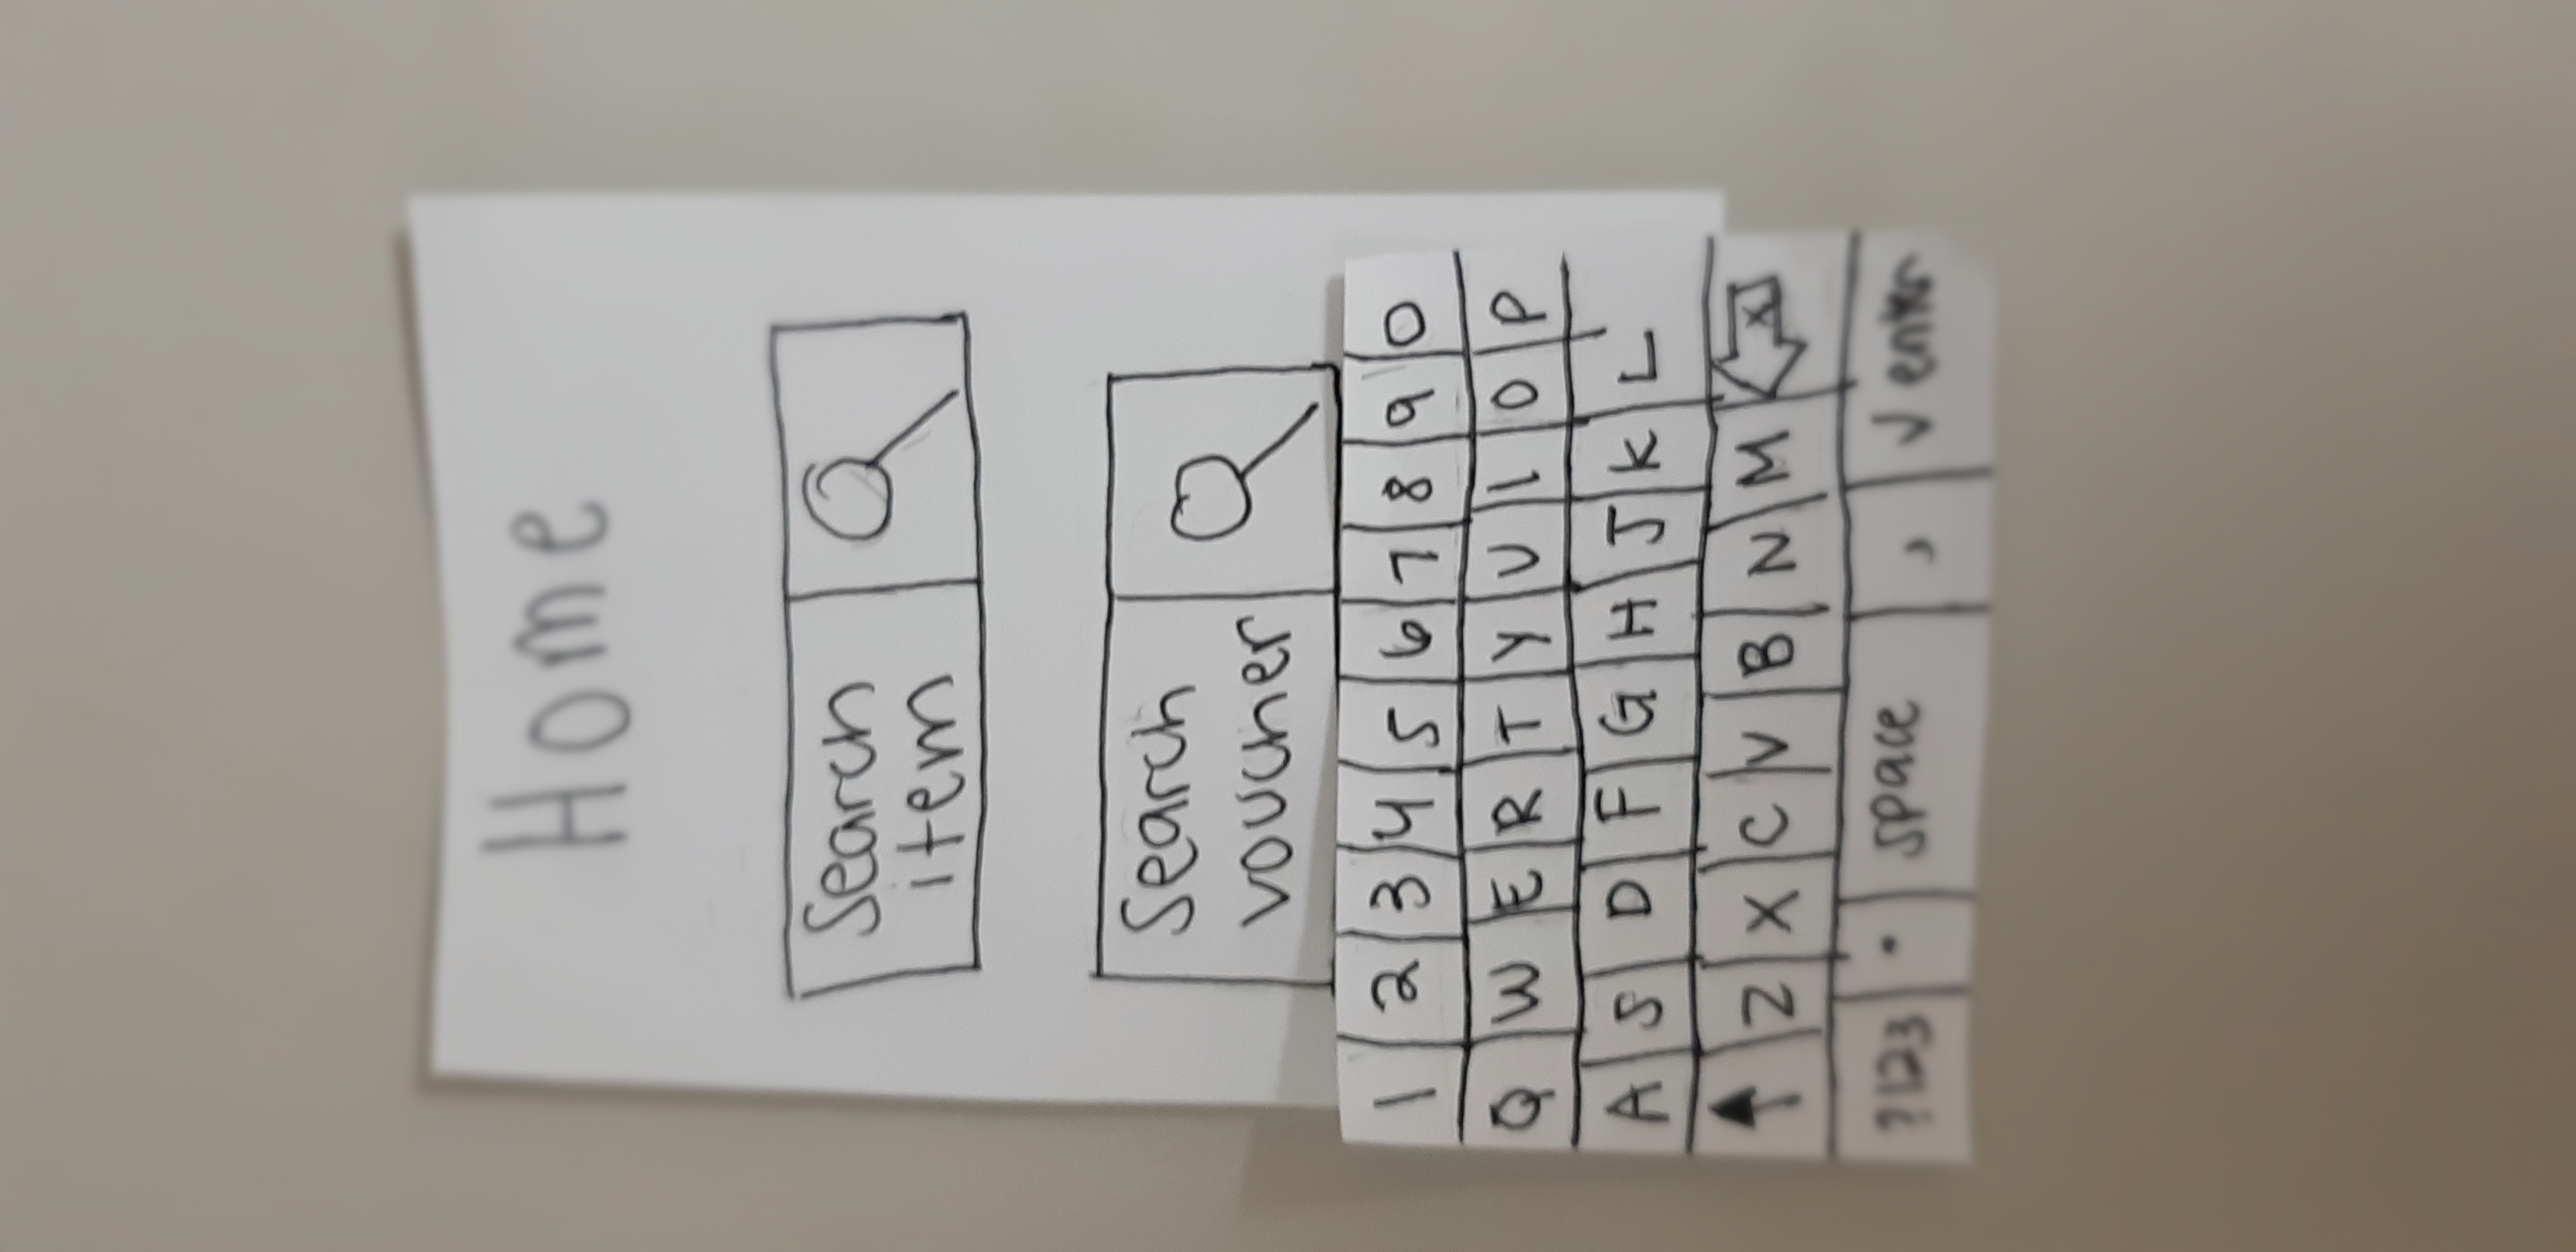 Home
Search
item
Search
voucher
1 2 3 4 5 6 7 8 9 0
Q W E R T Y U I O P
A S D F G H J K L
Z X C V B N M X
?123 . space , √ enter